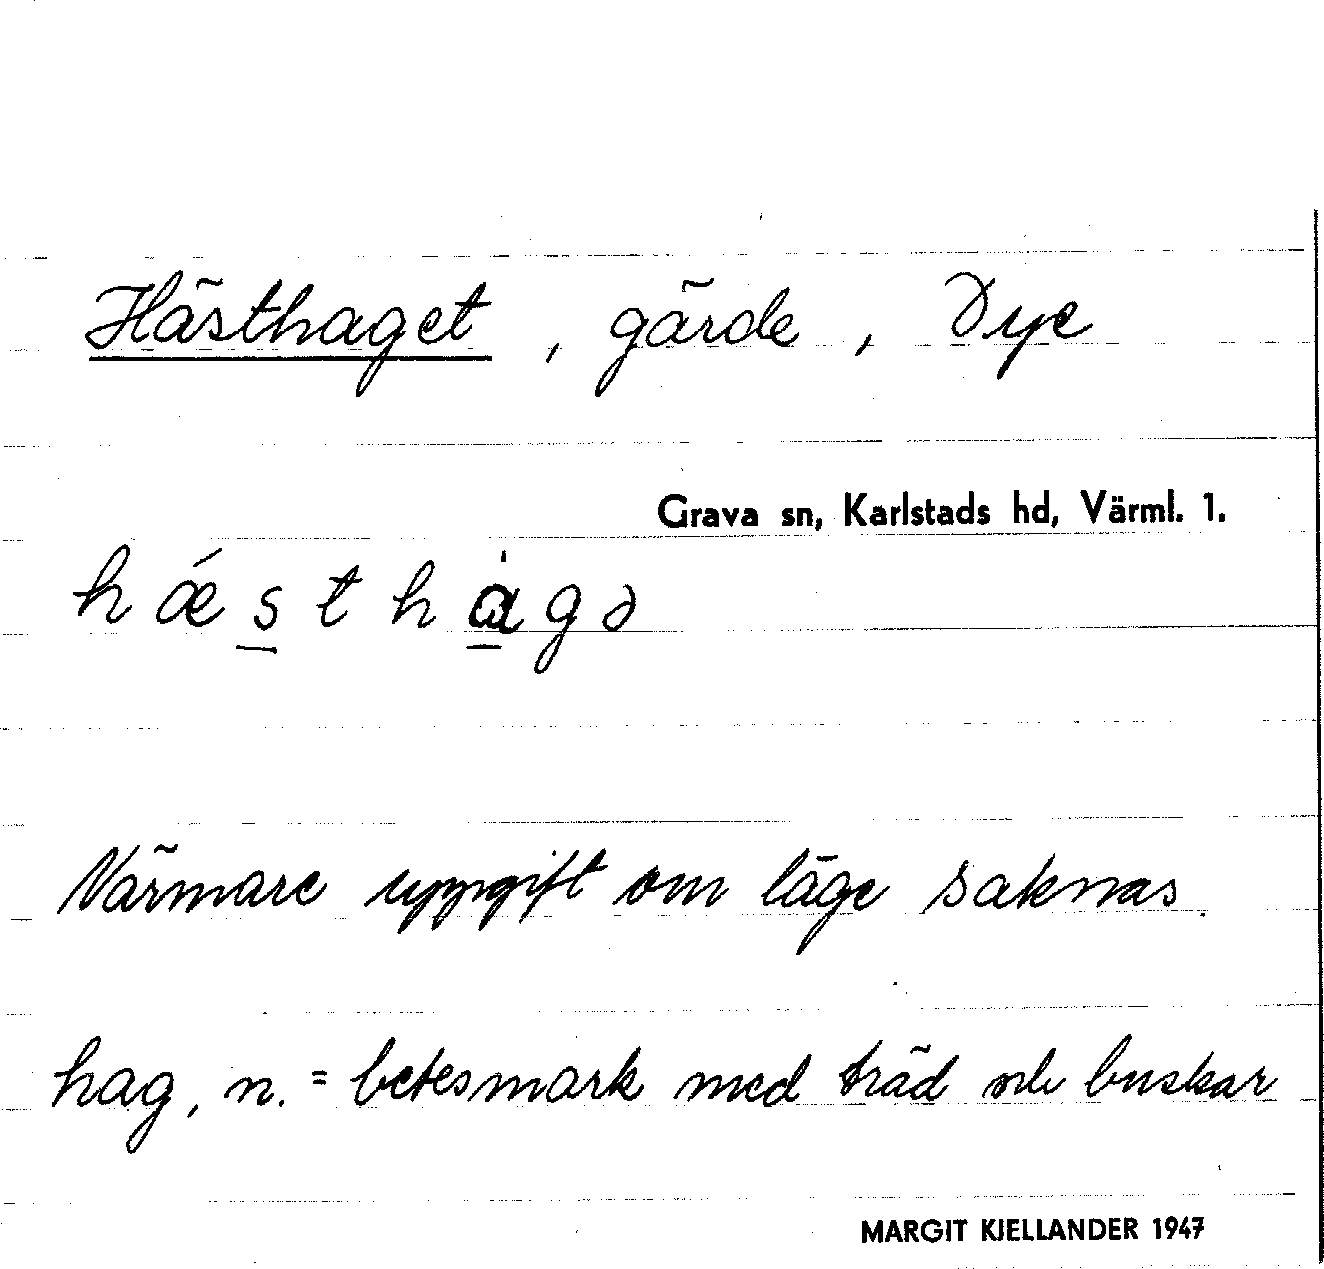 Hästhaget, gärde, Dye
Grava sn, Karlstads hd, Värml. 1.
hǽs̲tha̲̍gə
Närmare uppgift om läge saknas.
hag, n. = betesmark med träd och buskar
MARGIT KJELLANDER 1947